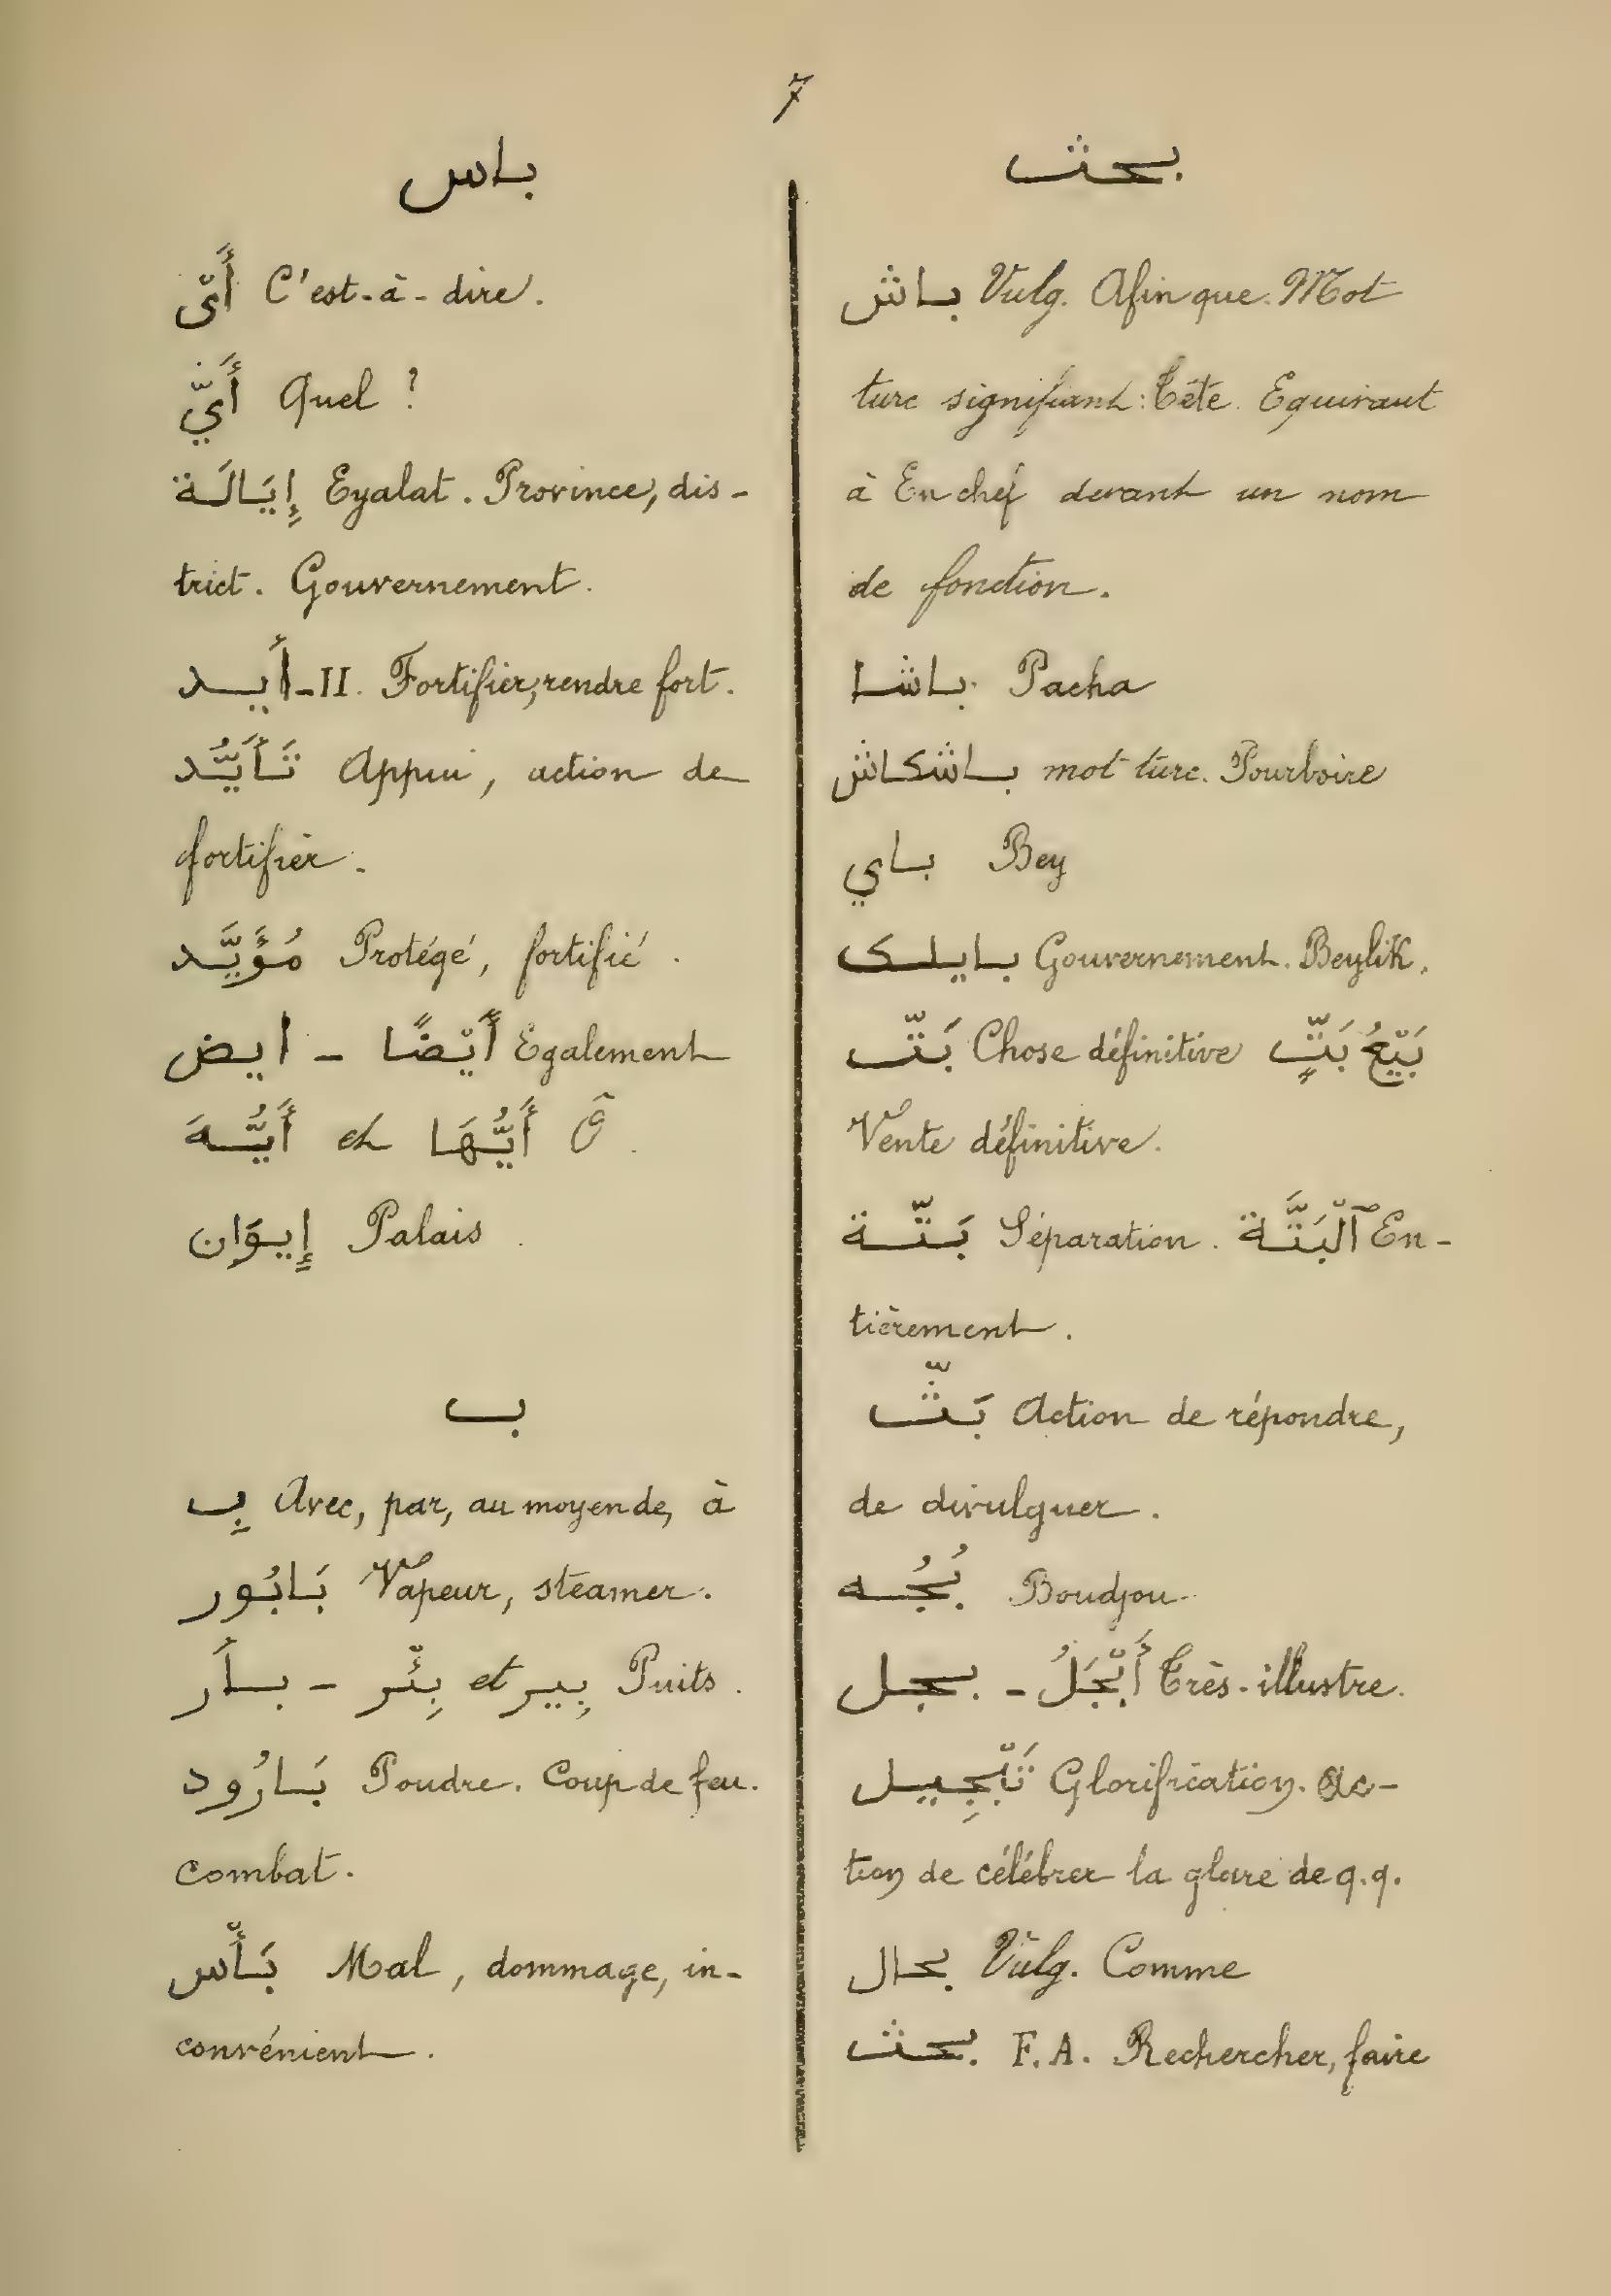 7
باس
أَىّ C'est-à-dire.
أَيّ Quel ?
إِيَالَة Eyalat. Province, dis-
trict. Gouvernement.
أيد - II. Fortifier, rendre fort.
تَأَيُّد Appui, action de
fortifier.
مُؤَيَّد Protégé, fortifié.
ايض - أَيْضًا Egalement
أَيُّهَ et أَيُّهَا Ô.
إِيوَان Palais.
ب
بِ Avec, par, au moyen de, à
بَابُور Vapeur, steamer.
بأر - بِئْر et بِير Puits.
بَارُود Poudre. Coup de feu.
Combat.
بَأْس Mal, dommage, in-
convénient.
بحث
باش Vulg. Afin que. Mot
turc signifiant : Tête. Equivaut
à En chef devant un nom
de fonction.
باشا Pacha
باشكاش mot turc. Pourboire
باي Bey
بايلك Gouvernement. Beylik.
بَتّ Chose définitive بَيْعُ بَتٍّ
Vente définitive.
بَتّة Séparation. ٱلْبَتَّة En-
tièrement.
بَثّ Action de répondre,
de divulguer.
بُجُه Boudjou.
بجل - أَبْجَلُ Très-illustre.
تَبْجِيل Glorification. ac-
tion de célébrer la gloire de q.q.
بحال Vulg. Comme
بحث F. A. Rechercher, faire